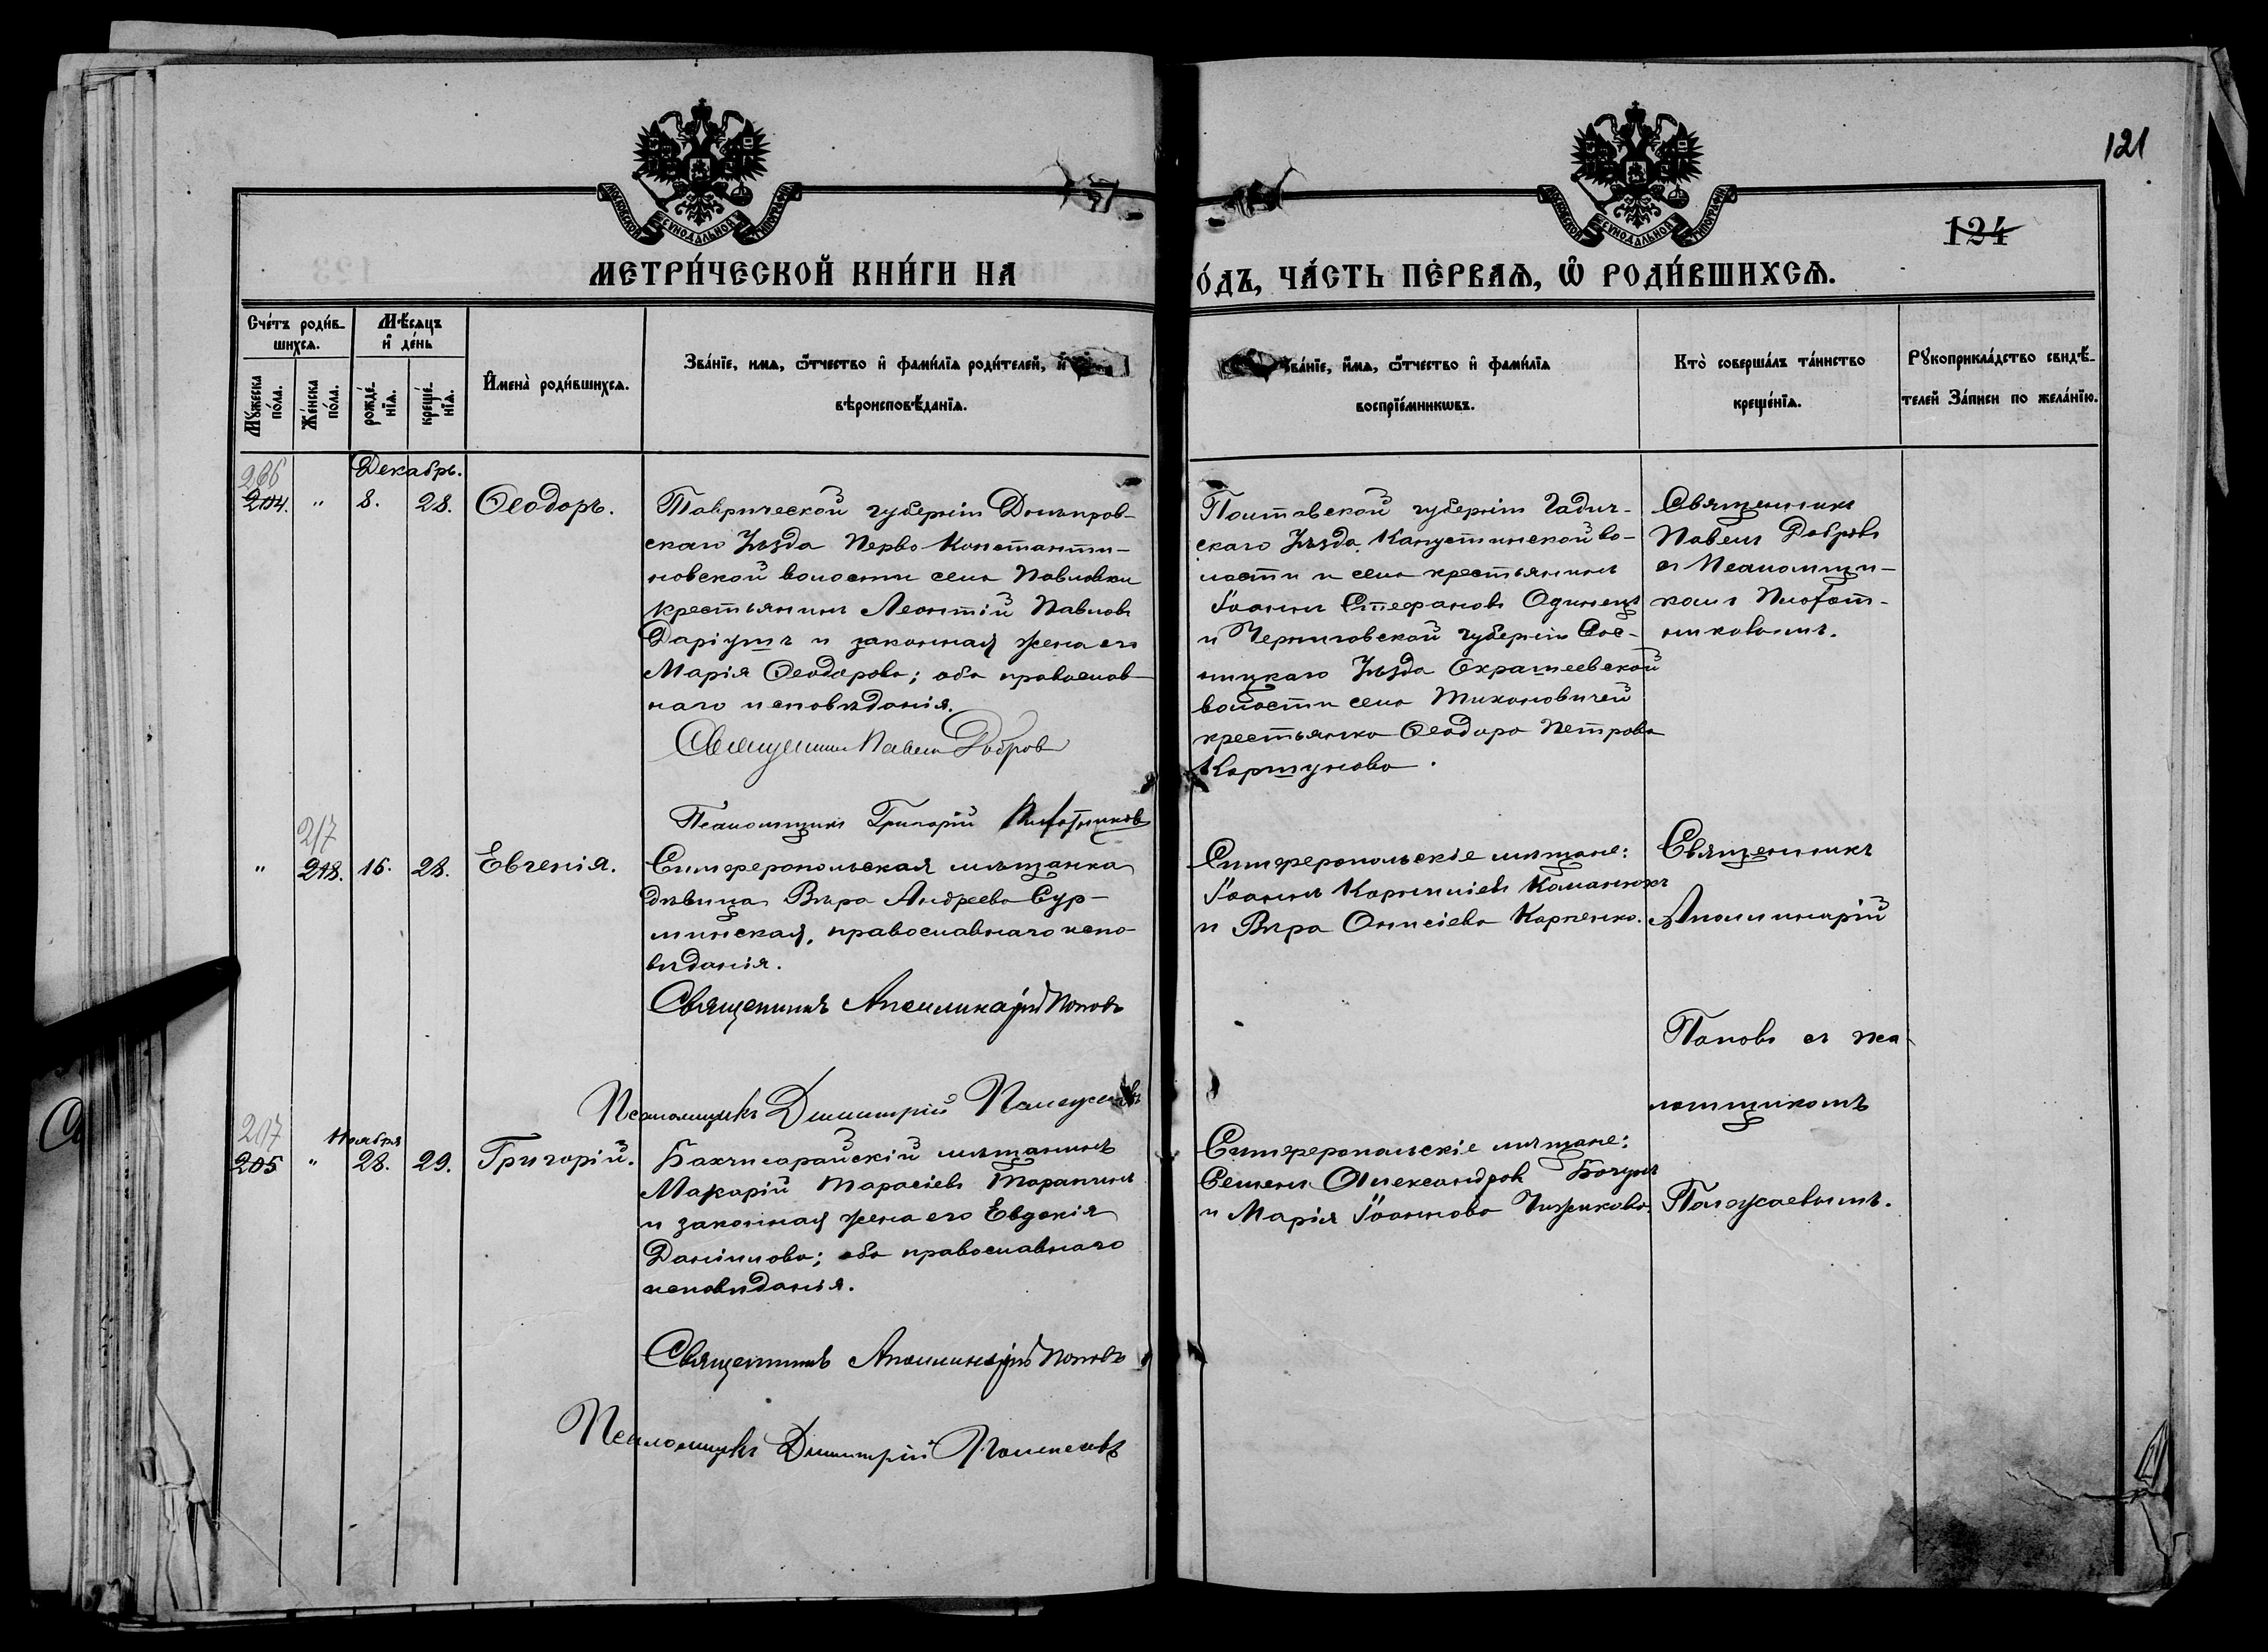 121
124
МОСКОВСКОЙ СѴНОДАЛЬНОЙ ТИПОГРАФІИ
МОСКОВСКОЙ СѴНОДАЛЬНОЙ ТИПОГРАФІИ
МЕТРИ́ЧЕСКОЙ КНИ́ГИ НА
О́ДЪ, ЧА́СТЬ ПЕ́РВАѦ, Ѡ҆ РОДИ́ВШИХСѦ.
Сче́тъ роди́в-
шихсѧ.
Мѣ́сѧцъ
и҆ де́нь
Мꙋ́жеска
по́ла.
Же́нска
по́ла.
рожде́-
нїѧ.
креще́-
нїѧ.
И҆мена̀ роди́вшихсѧ.
Зва́нїе, имѧ, ѻ҆́тчество и҆ фами́лїѧ роди́телей, и҆
вѣроисповѣ́данїѧ.
зва́нїе, и҆́мѧ, ѻ҆́тчество и҆ фами́лїѧ
воспрїе́мникѡвъ.
Кто̀ соверша́лъ та́инство
креще́нїѧ.
Рꙋкоприкла́дство свидѣ́-
телей За́писи по жела́нїю.
Декабрь.
206
204. " 8. 28. Ѳеодоръ.
Таврической губерніи Днѣпров-
скаго Уѣзда Перво Константи-
новской волости села Павловки
крестьянинъ Леонтій Павловъ
Даріушъ и законная жена его
Марія Ѳеодорова; оба православ-
наго исповѣданія.
Священникъ Павелъ Добровъ
Псаломщикъ Григорій
Полтавской губерніи Гадяч-
скаго Уѣзда, Капустинской во-
лости и села крестьянинъ
Іоаннъ Стефановъ Одинецъ
и Черниговской губерніи Сос-
ницкаго Уѣзда Охрамеевской
волости села Тихоновичей
крестьянка Ѳеодора Петрова
Коршунова.
Священникъ
Павелъ Добровъ
съ Псаломщи-
комъ
никовымъ.
217
" 218. 16. 28. Евгенія.
Симферопольская мѣщанка
дѣвица Вѣра Андреева Сур-
минская, православнаго испо-
вѣданія.
Священникъ Аполлинарій Поповъ
Псаломщикъ Димитрій
Симферопольскіе мѣщане:
Іоаннъ Корниліевъ Команюкъ
и Вѣра Онисіева Карпенко.
Священникъ
Аполлинарій
Поповъ съ Пса-
ломщикомъ
Полежаевымъ.
207
Ноября
205 " 28. 29. Григорій.
Бахчисарайскій мѣщанинъ
Макарій Тарасіевъ Таранинъ
и законная жена его Евдокія
Даніилова; оба православнаго
исповѣданія.
Священникъ Аполлинарій Поповъ
Псаломщикъ Димитрій Полежаевъ
Симферопольскіе мѣщане:
Семенъ Александровъ Богунъ
и Марія Іоаннова Чижикова